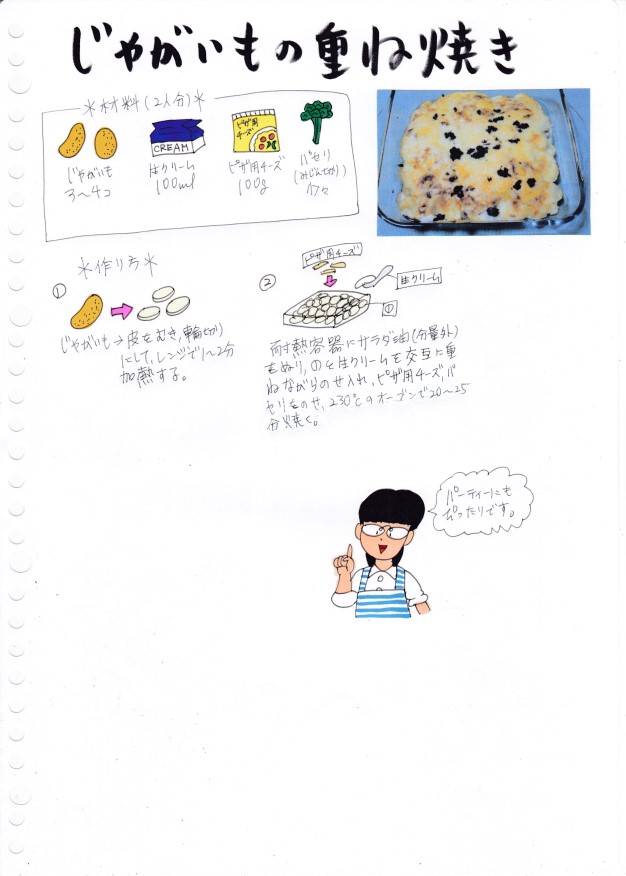 じゃがいもの重ね焼き
＊材料(2人分)＊
じゃがいも
3〜4コ
CREAM
生クリーム
100ml
ピザ用
チーズ
ピザ用チーズ
100g
パセリ
(みじん切り)
少々
＊作り方＊
①
じゃがいも→皮をむき,輪切り
にして,レンジで1〜2分
加熱する。
②
ピザ用チーズ
生クリーム
①
耐熱容器にサラダ油(分量外)
をぬり,①と生クリームを交互に重
ねながらのせ入れ,ピザ用チーズ,パ
セリをのせ,230℃のオーブンで20〜25
分焼く。
パーティーにも
ぴったりです。